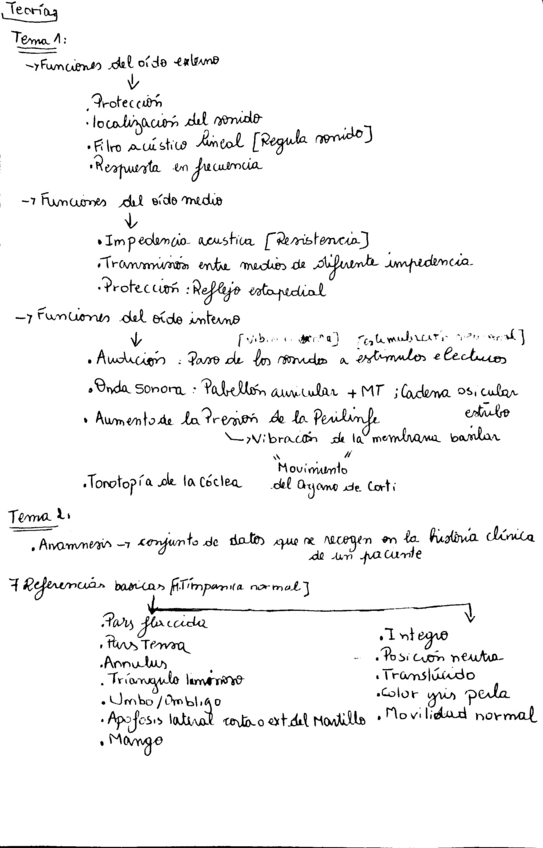 Teoría
Tema 1:
→ Funciones del oído externo
↓
. Protección
. localización del sonido
. Filtro acústico lineal [Regula sonido]
. Respuesta en frecuencia
→ Funciones del oído medio
↓
. Impedencia acustica [Resistencia]
. Transmisión entre medios de diferente impedencia
. Protección : Reflejo estapedial
→ Funciones del oído interno
↓
. Audición : Paso de los sonidos a estímulos electricos
. Onda sonora : Pabellón auricular + MT ; Cadena osicular
estribo
. Aumento de la Presión de la Perilinfe
↳ Vibración de la membrana basilar
"Movimiento"
. Tonotopía de la Cóclea del Organo de Corti
Tema 2.
. Anamnesis → conjunto de datos que se recogen en la história clínica
de un paciente
7 Referencias basicas [M. Timpanica normal]
. Pars flaccida
. Pars Tensa
. Annulus
. Triangulo luminoso
. Umbo/Ombligo
. Apofosis lateral corta o ext. del Martillo
. Mango
. Integro
. Posición neutra
. Translúcido
. Color gris perla
. Movilidad normal